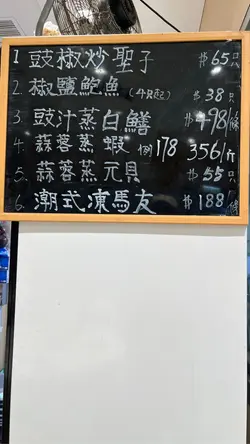 1 豉椒炒聖子 $65/只
2. 椒鹽鮑魚 (4只起) $38只
3 豉汁蒸白鱔 $498/條
4 蒜蓉蒸蝦 例178 356/斤
5. 蒜蓉蒸元貝 $55只
6. 潮式凍馬友 $188/條